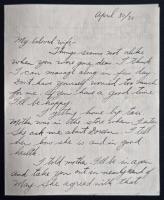 April 30/30
My beloved wife -
Things seems not alike
when you were gone dear. I think
I can manage along in few day
Don't have yourself worried too much
for me. If you have a good time
I'll be happy.
I getting home by two
Mother was in the store when I
She ask me about Doreen. I tell
her how she is and in good
health.
I told mother I'll be in again
and take you out on nearly end of
May. She agreed with that.